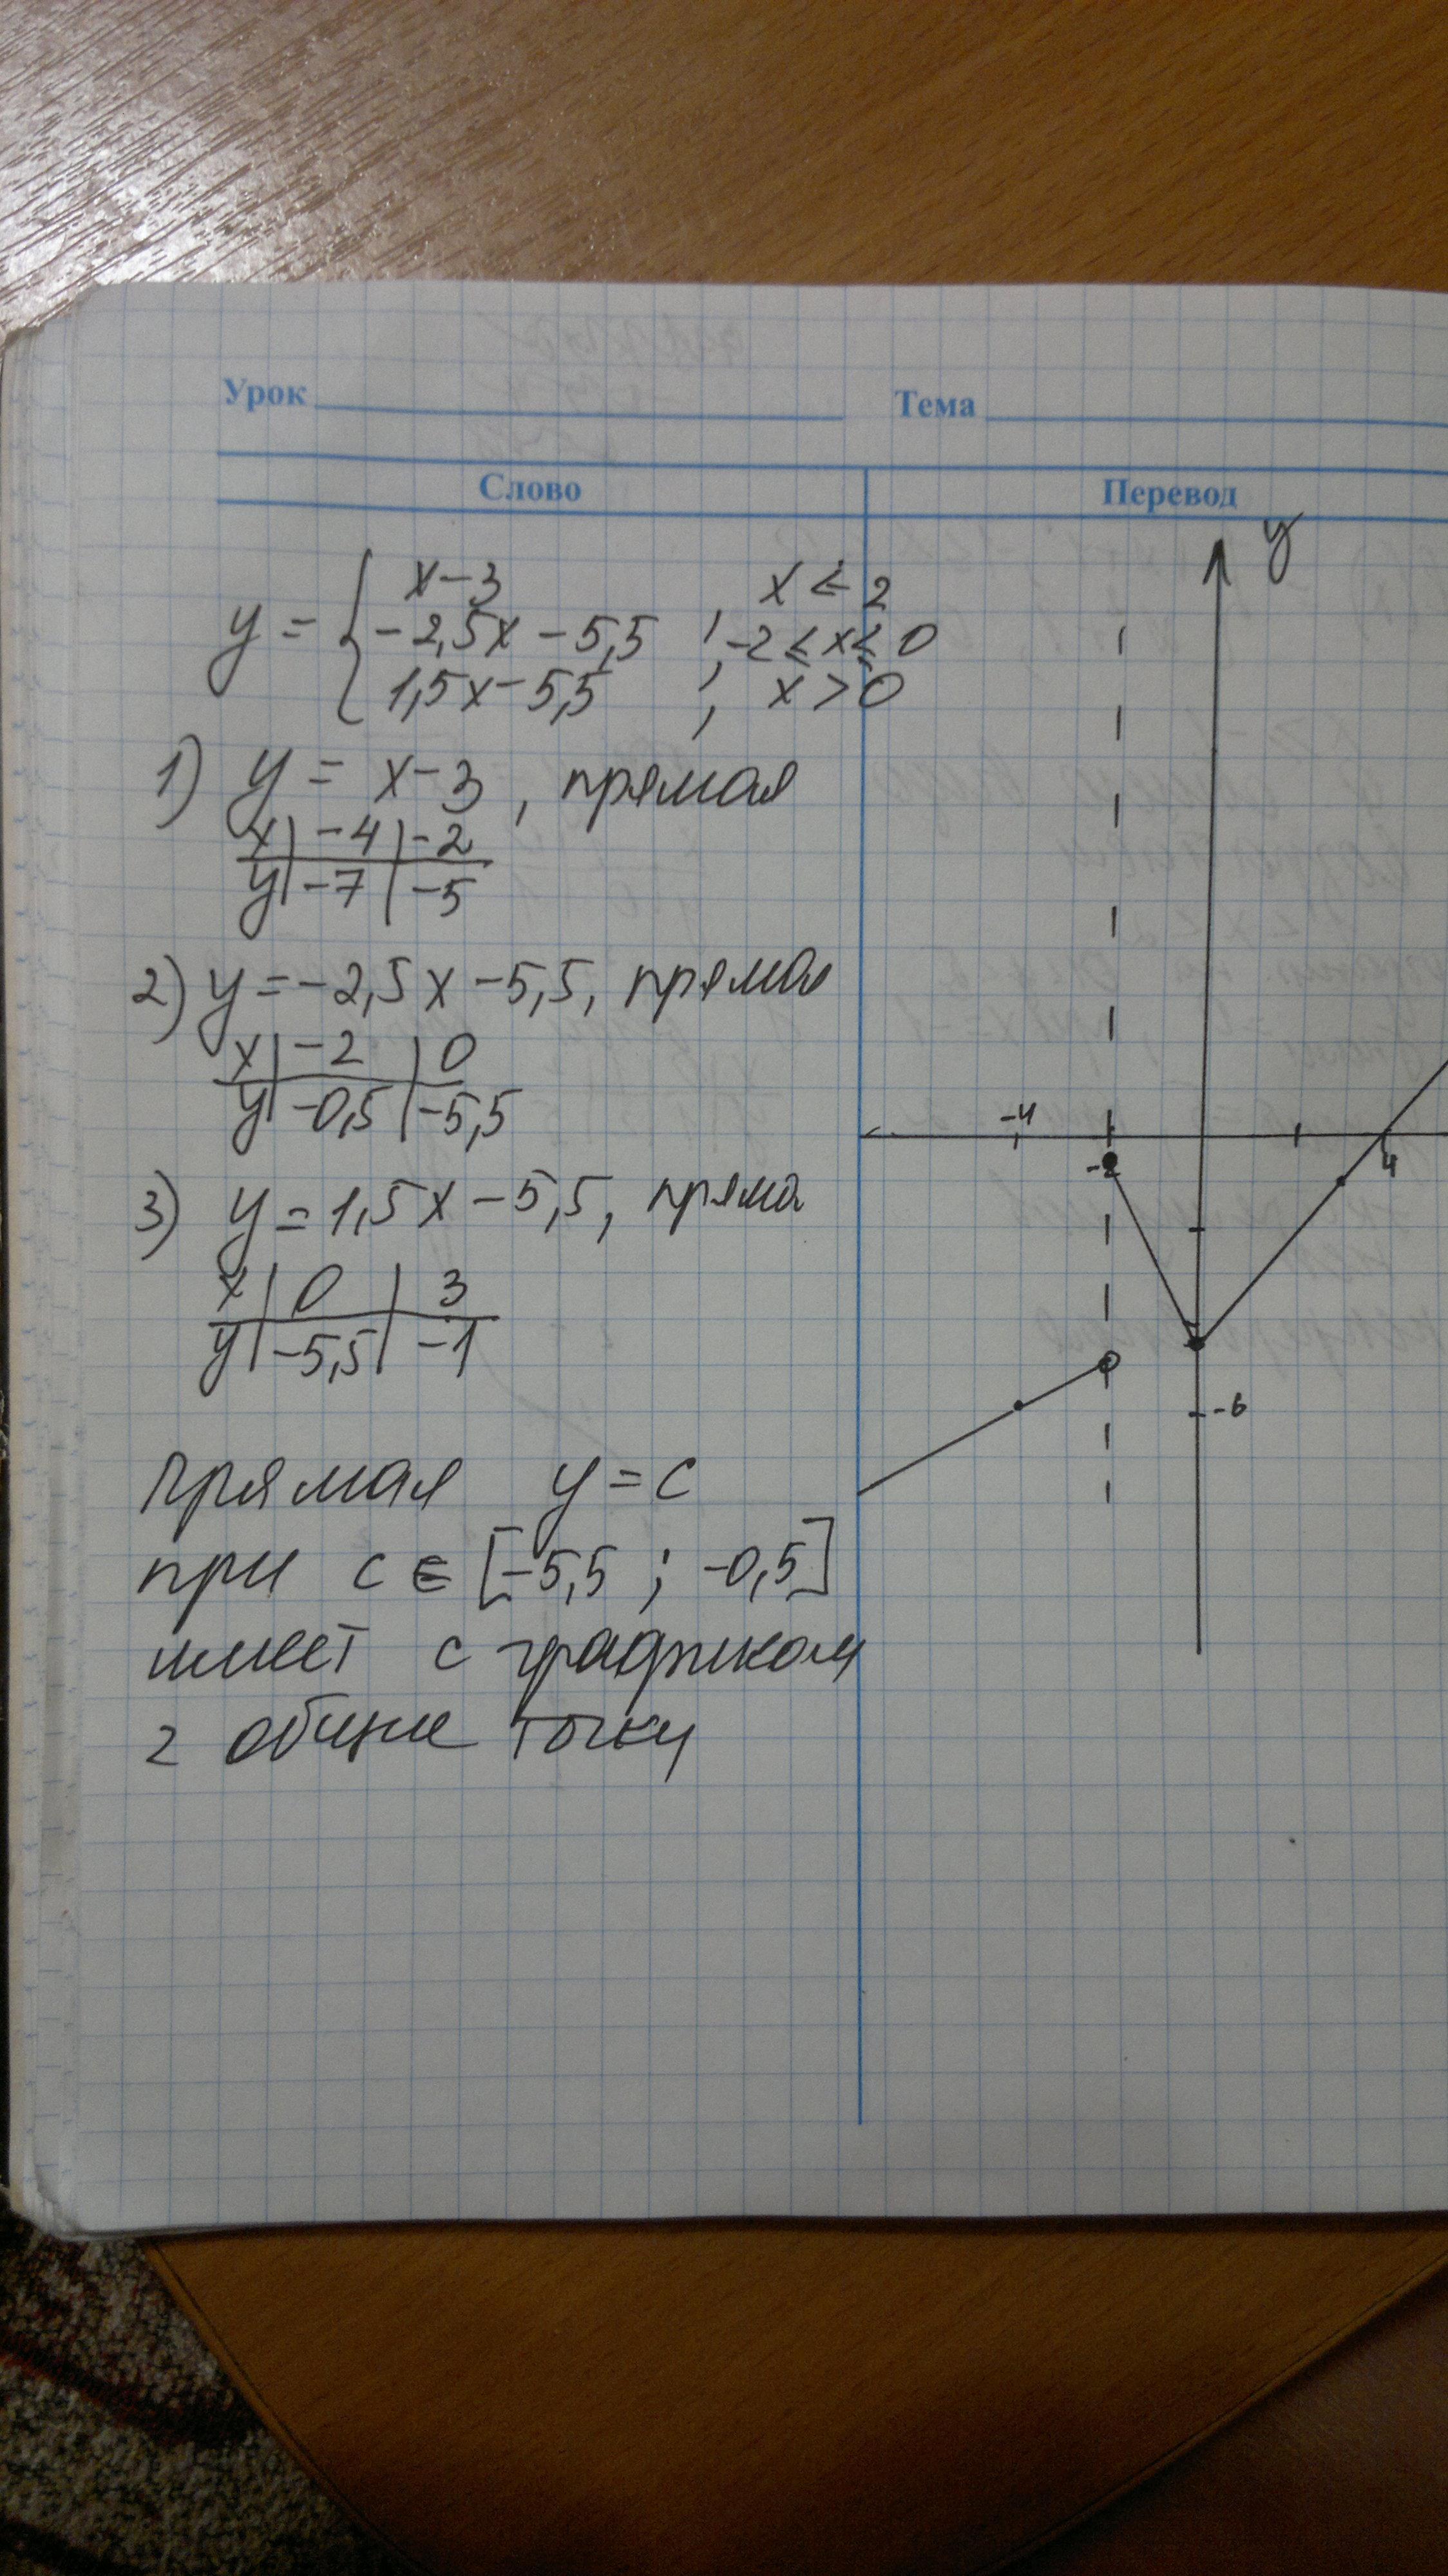 Урок Тема
Слово Перевод
y = { x-3 x ≤ 2
-2,5x - 5,5 ; -2 ≤ x ≤ 0
1,5x - 5,5 , x > 0
1) y = x-3, прямая
x | -4 | -2
y | -7 | -5
2) y = -2,5x - 5,5, прямая
x | -2 | 0
y | -0,5 | -5,5
3) y = 1,5x - 5,5, пряма
x | 0 | 3
y | -5,5 | -1
прямая y = c
при c ∈ [-5,5 ; -0,5]
имеет с графиком
2 общие точки
y
-4
-2
4
-6